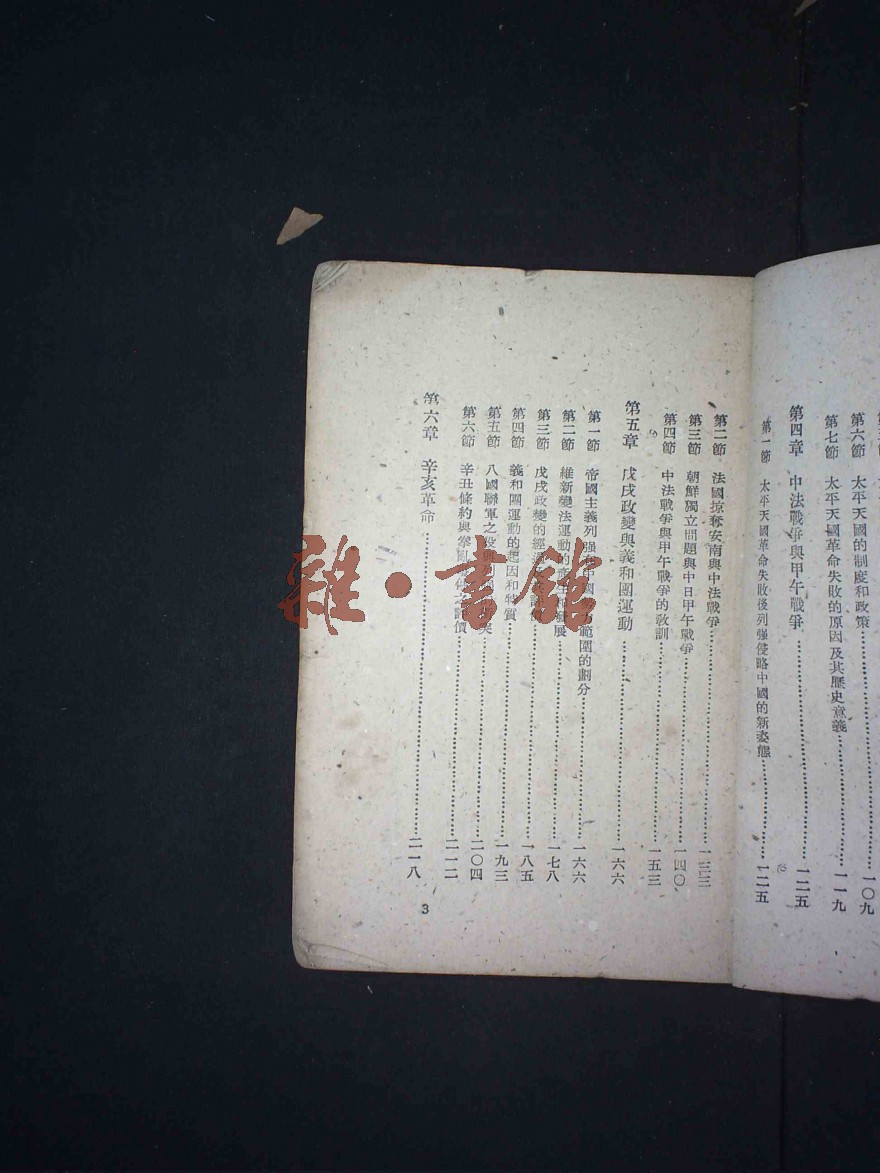 第六節 太平天國的制度和政策……一〇九
第七節 太平天國革命失敗的原因及其歷史意義……一一九
第四章 中法戰爭與甲午戰爭……一二五
第一節 太平天國革命失敗後列強侵略中國的新姿態……一二五
第二節 法國掠奪安南與中法戰爭……一三三
第三節 朝鮮獨立問題與中日甲午戰爭……一四〇
第四節 中法戰爭與甲午戰爭的教訓……一五三
第五章 戊戌政變與義和團運動……一六六
第一節 帝國主義列强 中國 範圍的劃分……一六六
第二節 維新變法運動的產生 發展……一七八
第三節 戊戌政變的經過……一八五
第四節 義和團運動的起因和特質……一九三
第五節 八國聯軍之役與……二〇四
第六節 辛丑條約與拳亂 評價……二一二
第六章 辛亥革命……二一八
3
雜·書館